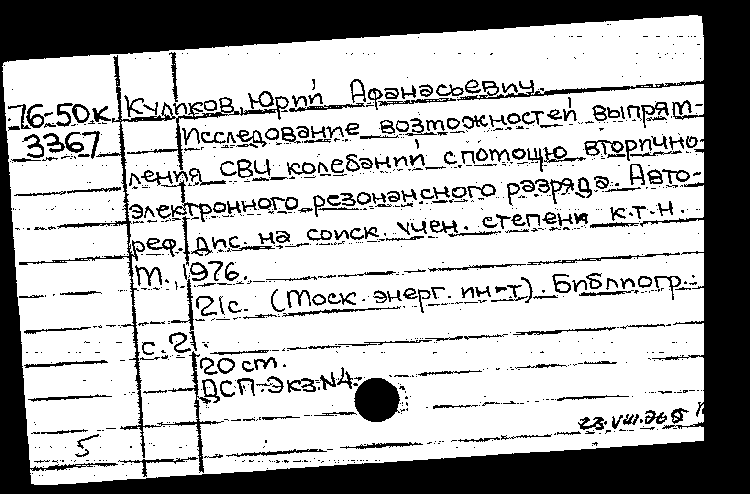 76-50к Куликов, Юрий Афанасьевич.
3367 Исследование возможностей выпрям-
ления СВЧ колебаний с помощью вторично-
электронного резонансного разряда. Авто-
реф. дис. на соиск. учен. степени к.т.н.
М., 1976.
21с. (Моск. энерг. ин-т). Библиогр.:
с. 21.
20 cm.
ДСП-Экз.N4.
5